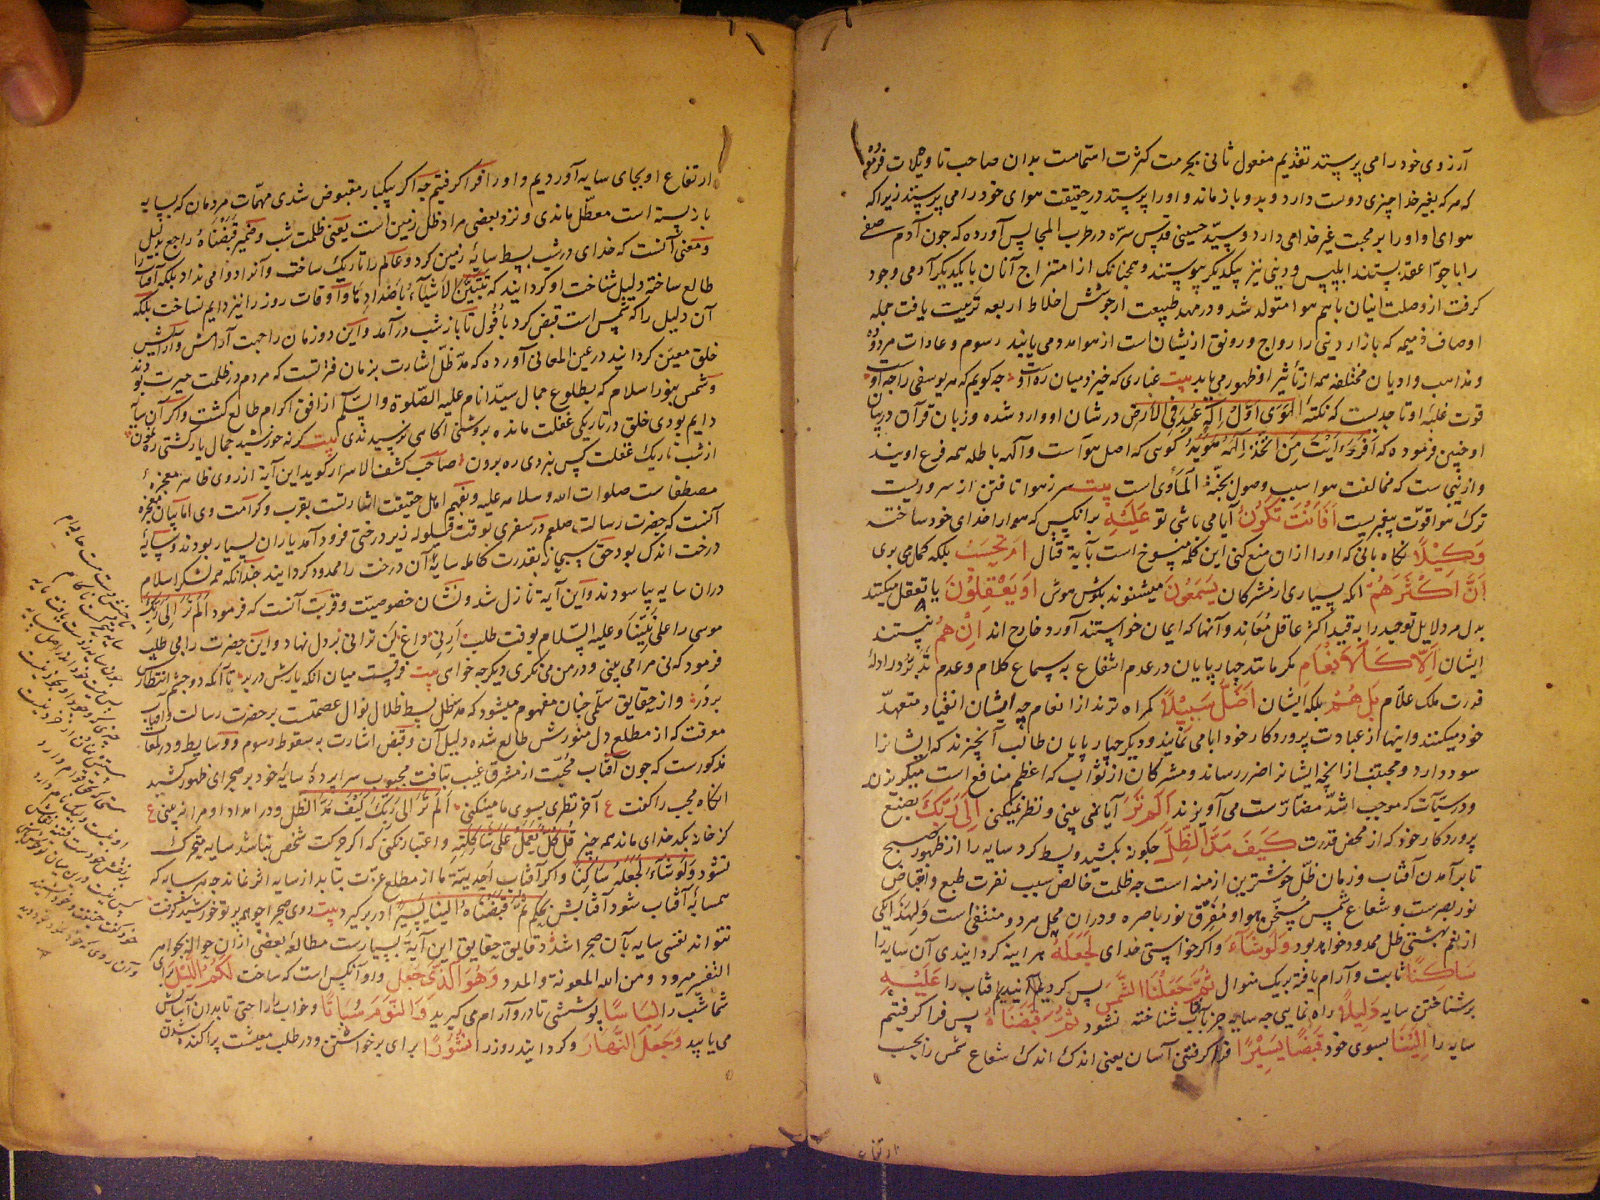 آرزوی خود را می پرستد تقدیم مفعول ثانی بجهت کثرت اهتمامست بدان صاحب تاویلات فرموده
که هر که بغیر خدا چیزی دوست دارد و بدو باز ماند و او را پرستد در حقیقت هوای خود را می پرستد زیرا که
هوای او او را بر محبت غیر خدا می دارد و سید حسینی قدس سره در طرب المجالس آورده که چون آدم صفی
را با حوا عقد بستند ابلیس و دنیی نیز بیکدیگر پیوستند و همچنانکه از امتزاج آنان با یکدیگر آدمی وجود
گرفت از وصلت اینان باهم هوا متولد شد و در مهد طبیعت از جوشش اخلاط اربعه تربیت یافت جمله
اوصاف ذمیمه که بازار دنیی را رواج و رونق ازیشان است از هوا مدد می یابند رسوم و عادات مردوده
و مذاهب و ادیان مختلفه همه از تأثیر او ظهور می یابد بیت غباری که خیزد میان ره اوست چه گویم که هر یوسفی را چه اوست
قوت غلبهٔ او تا حدیست که نکتهٔ الهوی اول اله عبد فی الارض در شان او وارد شده و زبان قرآن در بیان
او چنین فرموده که افرءیت من اتخذ الهه هویه گوئی که اصل هوا است و آلهه باطله همه فرع اویند
و ازینست که مخالفت هوا سبب وصول بجنة المأوی است بیت سر ز هوا تافتن از سروریست
ترک هوا قوت پیغمبریست أفأنت تكون آیا می باشی تو عليه برانکس که هوا را خدای خود ساخته
وكيلا نگاه بانی که او را ازان منع کنی این کلمه منسوخ است بآیة قتال ام تحسب بلکه گمان می بری
ان اكثرهم انکه بسیاری از مشرکان يسمعون میشنوند بگوش هوش او يعقلون یا تعقل میکنند
بدل مر دلایل توحید را بقید اکثر عاقل معاند و آنها که ایمان خواستند آورد خارج اند ان هم نیستند
ایشان الا كالانعام مگر مانند چهارپایان در عدم انتفاع بسماع کلام و عدم تدبر در ادلهٔ
قدرت ملک علام بل هم بلکه ایشان اضل سبيلا گمراه ترند از انعام چه ایشان انقیاد متعهد
خود میکنند و اینها از عبادت پروردگار خود ابا می نمایند و دیگر چهارپایان طالب آنچیزند که ایشانرا
سود دارد و مجتنب از انچه ایشانرا ضرر رساند و مشرکان از ثواب که اعظم منافع است میگریزند
و در سیآت که موجب اشد مضارست می آویزند الم تر آیا نمی بینی و نظر نمیکنی الى ربك بصنع
پروردگار خود که از محض قدرت كيف مد الظل چگونه بکشید و بسط کرد سایه را از ظهور صبح
تا برآمدن آفتاب و زمان ظل خوشترین ازمنه است چه ظلمت خالص سبب نفرت طبع و انقباض
نور بصرست و شعاع شمس مسخن هوا و مفرق نور باصره و دران محل هر دو منتفی است و لهذا یکی
از نعم بهشتی ظل ممدود خواهد بود ولو شاء و اگر خواستی خدای لجعله هر آینه گردانیدی آن سایه را
ساكنا ثابت و آرام یافته بریک منوال ثم جعلنا الشمس پس گردانیدیم آفتاب را عليه
بر شناختن سایه دليلا راه نمایی چه سایه جز بآفتاب شناخته نشود ثم قبضناه پس فرا گرفتیم
سایه را الينا بسوی خود قبضا يسيرا فرا گرفتنی آسان یعنی اندک اندک شعاع شمس را بحسب
ارتفاع
ارتفاع او بجای سایه آوردیم و او را فرا گرفتیم چه اگر بیکبار مقبوض شدی مهمات مردمان که بسایه
باز بسته است معطل ماندی و نزد بعضی مراد ظل زمین است یعنی ظلمت شب و ضمیر قبضناه راجع بدلیل
و معنی آنست که خدای در شب بسط سایهٔ زمین کرد و عالم را تاریک ساخت و آنرا دوامی نداد بلکه آفتاب را
طالع ساخته دلیل شناخت او گردانید که تتبین الاشیاء باضدادها و اوقات روز را نیز دایم نساخت بلکه
آن دلیل را که شمس است قبض کرد بافول تا باز شب درآمد و این دو زمان را جهت آرامش و آرایش
خلق معین گردانید در عین المعانی آورده که مد ظل اشارت بزمان فترتست که مردم در ظلمت حیرت بودند
و شمس بنور اسلام که بطلوع جمال سید انام علیه الصلوة والسلم از افق اکرام طالع گشت و اگر آن سایه
دایم بودی خلق در تاریکی غفلت مانده بروشنی آگاهی نرسیدندی بیت گرنه خورشید جمال یار گشتی رهنمون
از شب تاریک غفلت کس نبردی ره برون صاحب کشف الاسرار گوید این آیة از روی ظاهر معجزهٔ
مصطفا ست صلوات الله و سلامه علیه و بفهم اهل حقیقت اشارتست بقرب و کرامت وی اما بیان معجزه
آنست که حضرت رسالت صلعم در سفری بوقت قیلوله زیر درختی فرود آمد یاران بسیار بودند و سایهٔ
درخت اندک بود حق سبحانه بقدرت کامله سایهٔ آن درخت را ممدود گردانید چندانکه همه لشکر اسلام
دران سایه بیاسودند و این آیة نازل شد و نشان خصوصیت و قربت آنست که فرمود الم تر الی ربک
موسی را علی نبینا و علیه السلام بوقت طلب ارنی داغ لن ترانی بر دل نهاد و این حضرت را بی طلب
فرمود که نی مرا می بینی و در من می نگری دیگر چه خواهی بیت فرقست میان انکه یارش در بر تا آنکه دو چشم انتظارش
بر در و از حقایق سلمی چنان مفهوم میشود که مد ظل بسط ظلال نوال عصمتست بر حضرت رسالت و آفتاب
معرفت که از مطلع دل منورش طالع شده دلیل آن و قبض اشارت به سقوط رسوم و وسایط و در لمعات
مذکورست که چون آفتاب محبت از مشرق غیب بتافت محبوب سراپردهٔ سایهٔ خود بر صحرای ظهور کشید
انگاه محب را گفت ع آخر نظری بسوی ما میکن الم تر الی ربک کیف مد الظل و در امداد او مرا نبینی ع
کز خانه بکدخدای ماند همه چیز قل کل یعمل علی شاکلته و اعتبار نکنی که اگر حرکت شخص نباشد سایه متحرک
نشود ولو شاء لجعله ساکنا و اگر آفتاب احدیت ما از مطلع عزت بتابد از سایه اثر نماند چه هر سایه که
همسایهٔ آفتاب شود آفتابش بحکم ثم قبضناه الینا یسیرا در بر گیرد بیت روی صحرا چو همه پرتو خورشید گرفت
نتواند نفسی سایه بآن صحرا شد و دقایق و حقایق این آیة بسیارست مطالعهٔ بعضی ازان حواله بجواهر
التفسیر میرود و من الله المعونة والمدد وهو الذي جعل و او آنکس است که ساخت لكم الليل برای
شما شب را لباسا پوششی تا درو آرام می گیرید والنوم سباتا و خواب را راحتی تا بدان آسایش
می یابید وجعل النهار و گردانید روز را نشورا برای برخاستن و در طلب معیشت پراکنده شدن